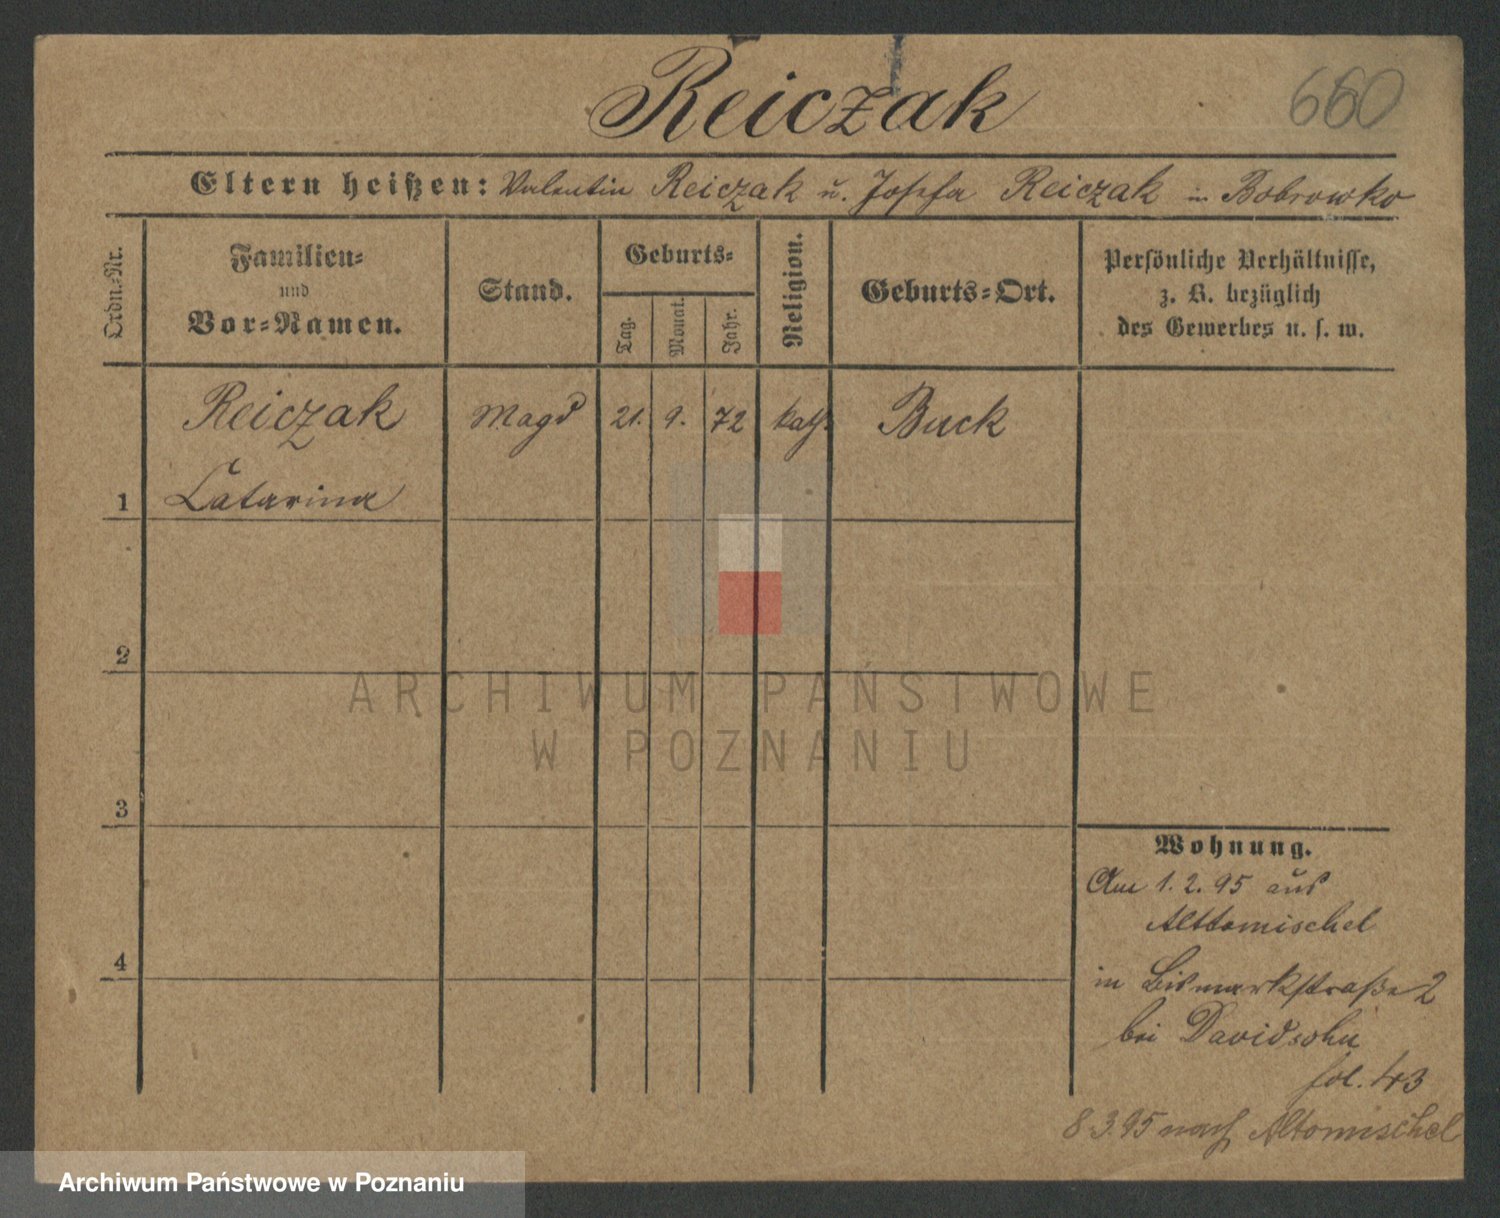 Reiczak 660
Eltern heißen: Valentin Reiczak u. Josefa Reiczak in Bobrowko
Ordn.-Nr.
Familien-
und
Vor-Namen.
Stand.
Geburts-
Tag.
Monat.
Jahr.
Religion.
Geburts-Ort.
Persönliche Verhältnisse,
z. B. bezüglich
des Gewerbes u. s. w.
Reiczak Magd 21. 9. 72 kath. Buck
1 Catarina
2
ARCHIWUM PAŃSTWOWE
W POZNANIU
3
4
Wohnung.
Am 1. 2. 95 aus
Alttomischel
in Bismarkstraße 2
bei Davidsohn
fol. 43
8.3.95 nach Altomischel
Archiwum Państwowe w Poznaniu